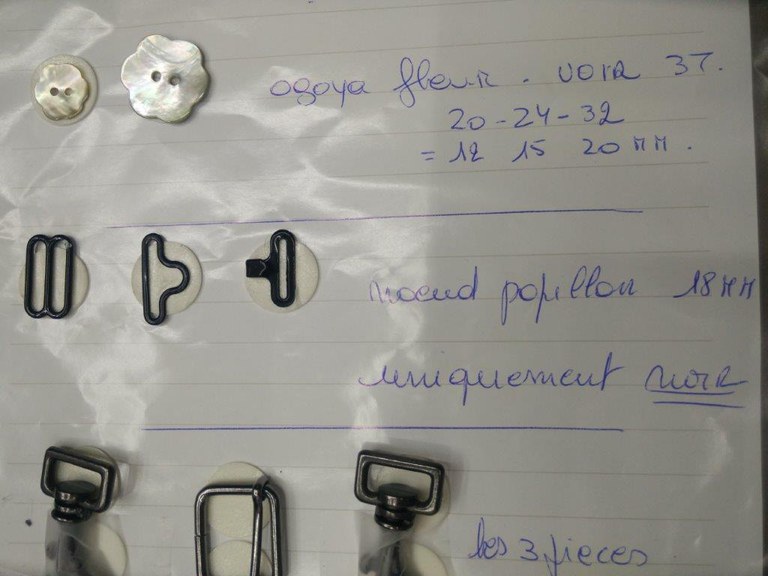 ogoya fleur. VOIR 37.
20-24-32
= 12 15 20 MM.
noeud papillon 18 MM
uniquement NOIR
les 3 pieces